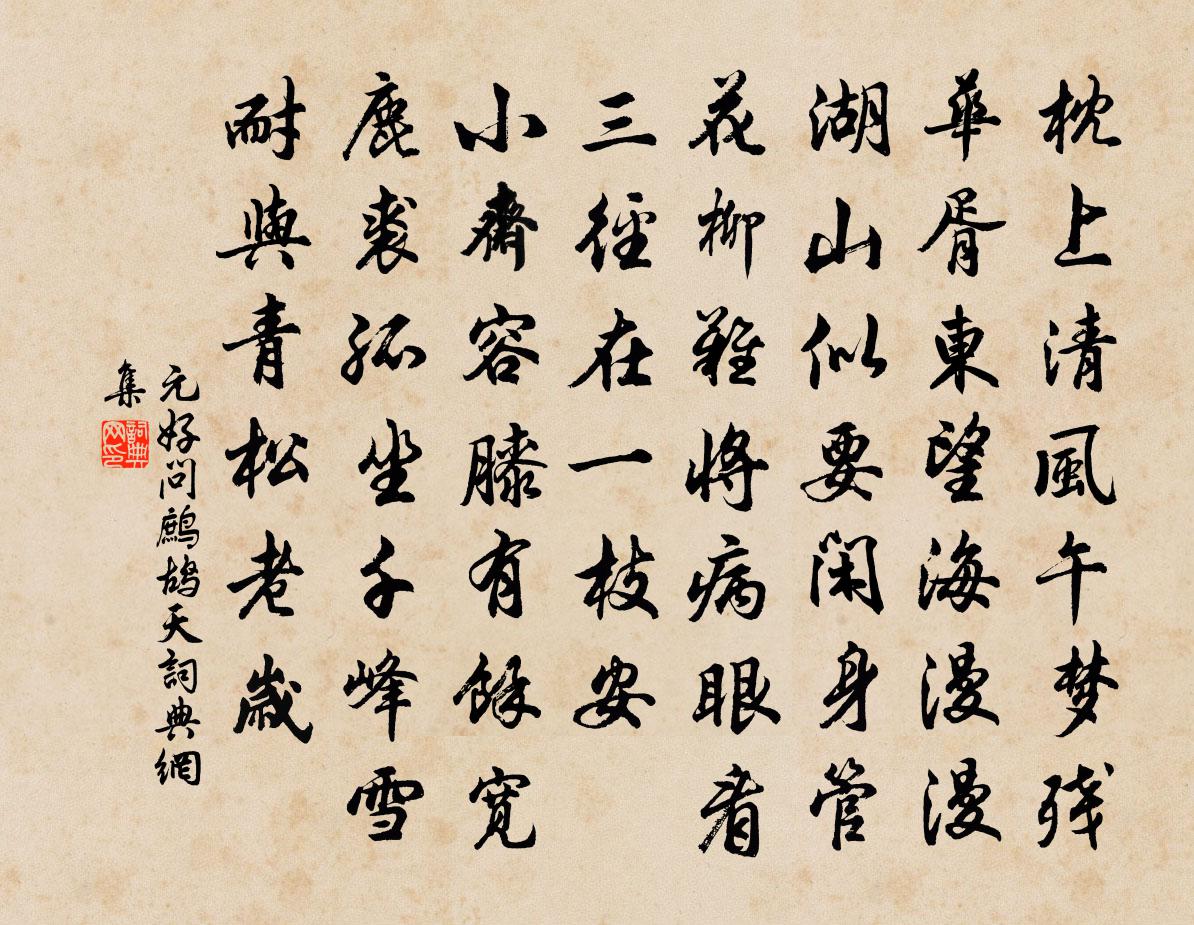 枕上清風午梦残
華胥東望海漫漫
湖山似要閑身管
花柳難將病眼看
三徑在一枝安
小齋容膝有餘寬
鹿裘孤坐千峰雪
耐與青松老歲
元好問鷓鴣天詞典網
集
詞典網印